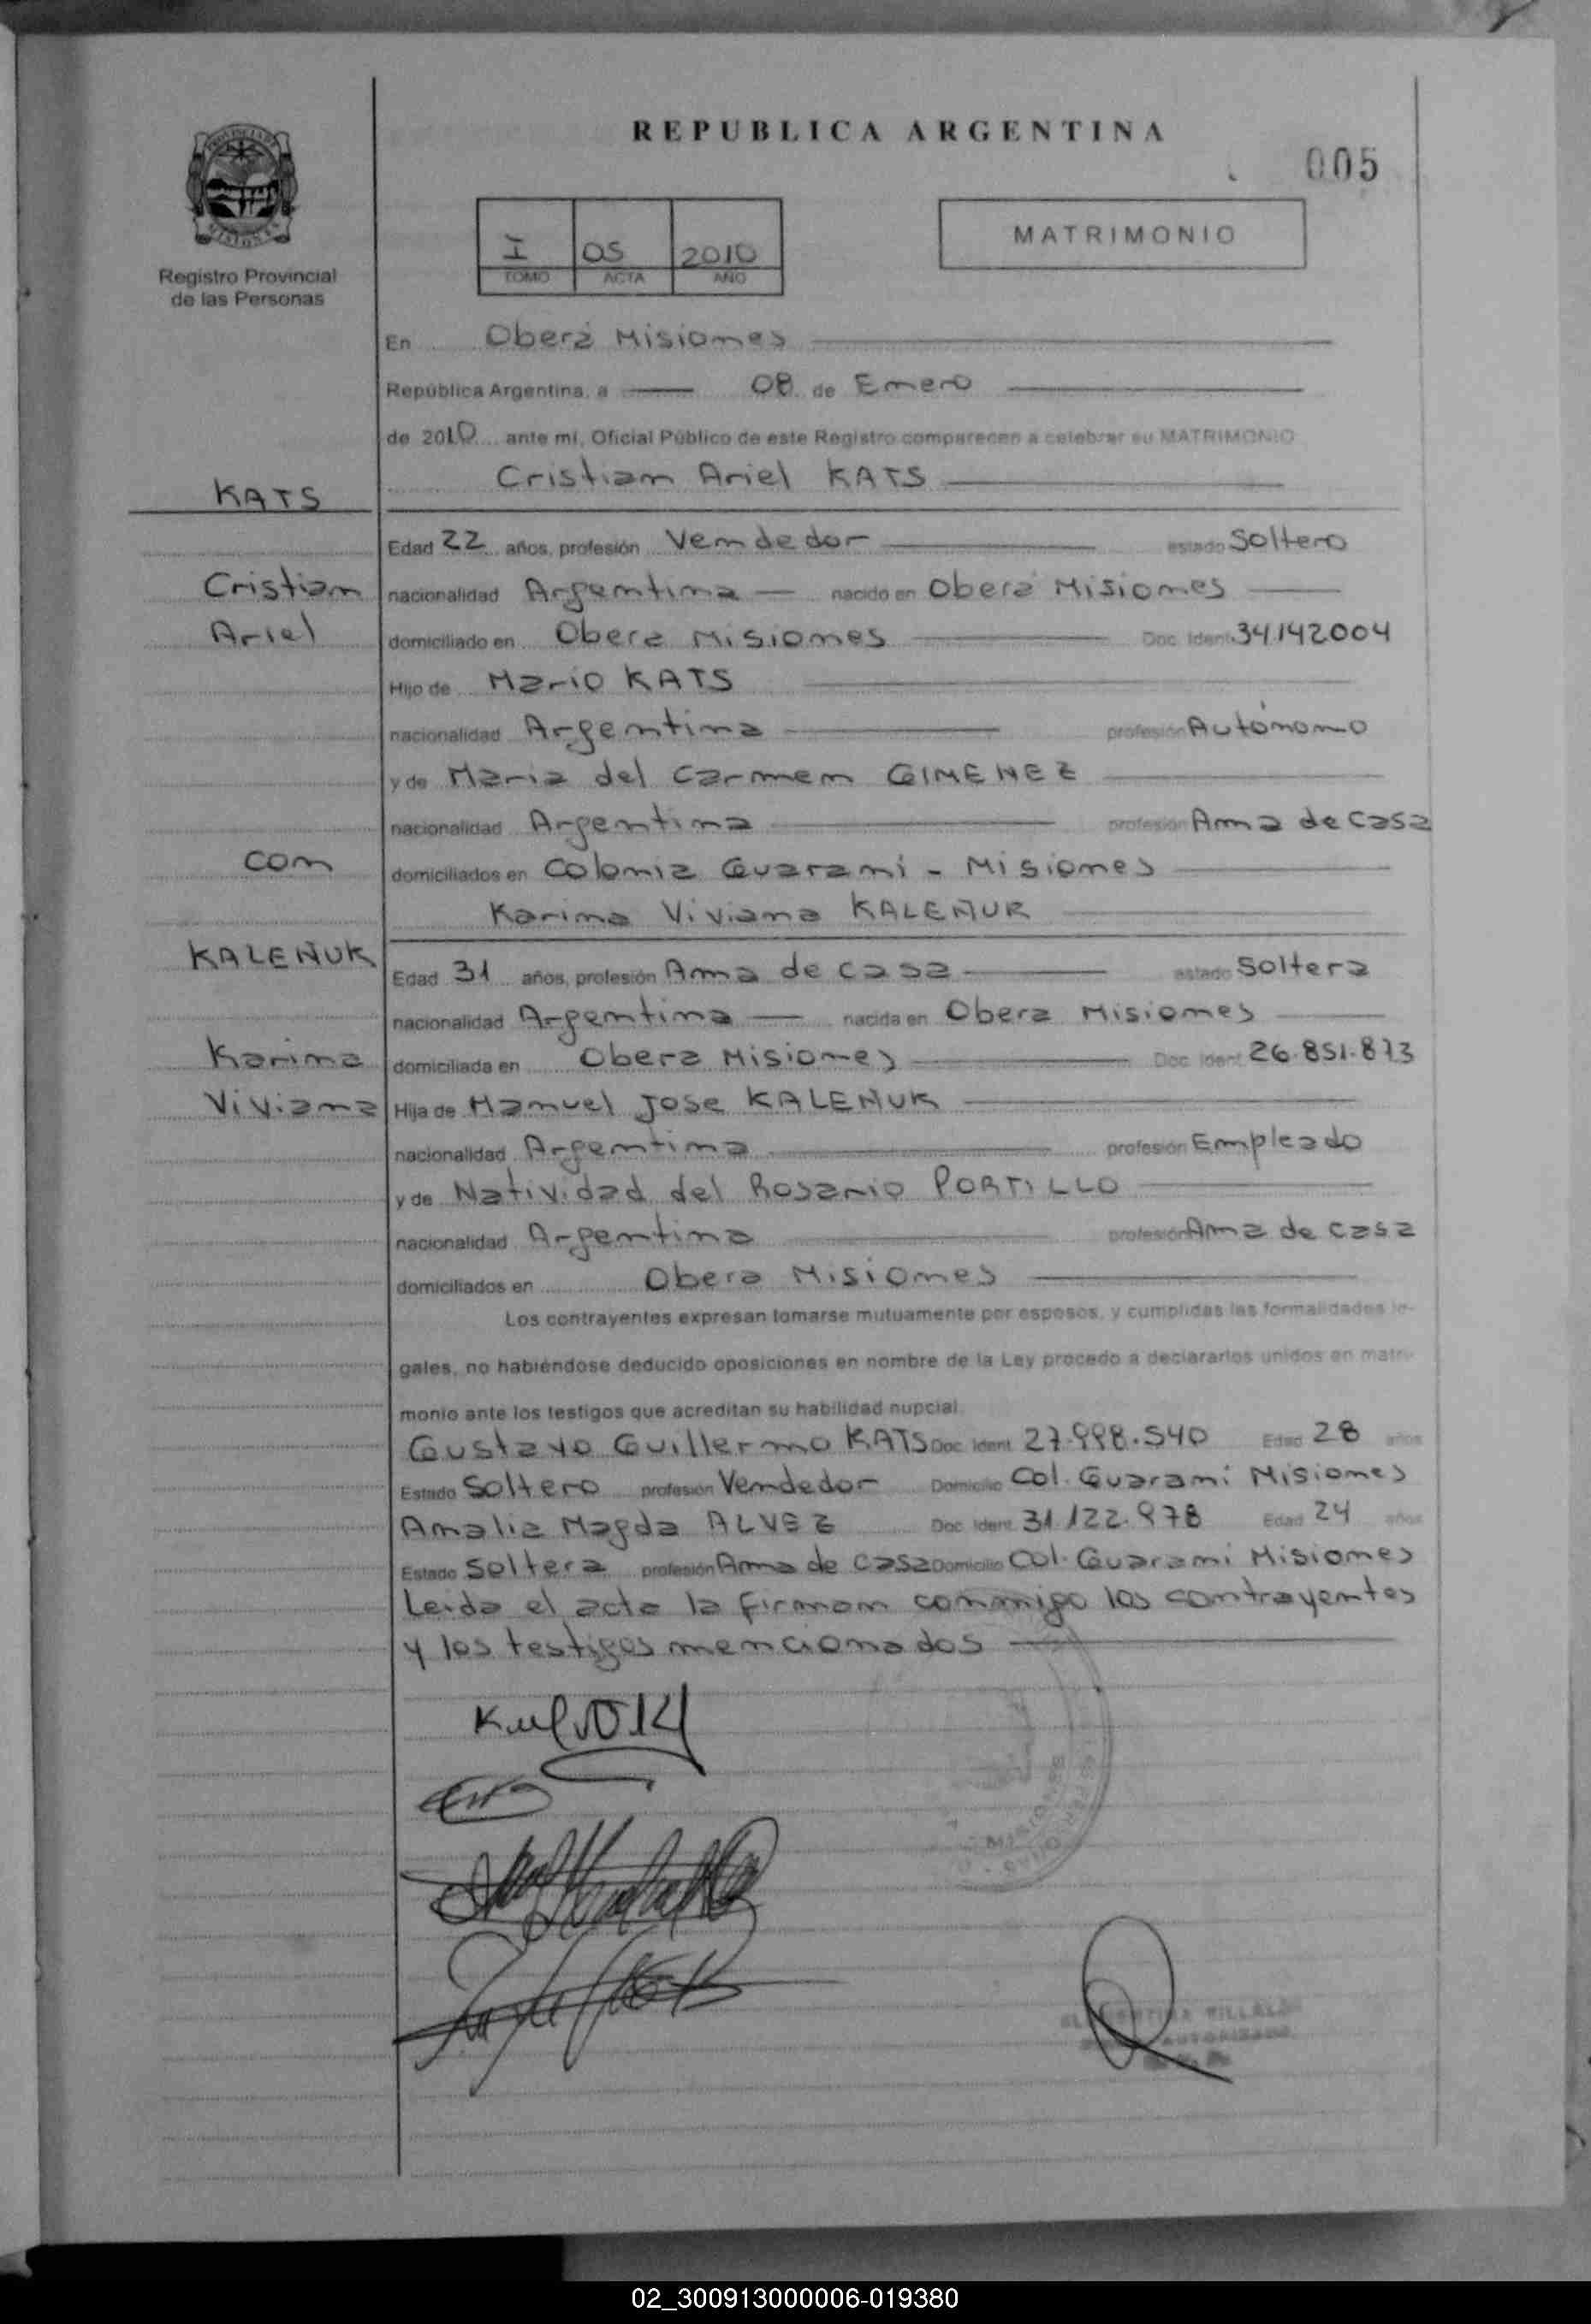 REPUBLICA ARGENTINA
005
PROVINCIA DE
MISIONES
Registro Provincial
de las Personas
I 05 2010
TOMO ACTA AÑO
MATRIMONIO
En Oberá Misiones
República Argentina, a 08 de Enero
de 2010 ante mí, Oficial Público de este Registro comparecen a celebrar su MATRIMONIO
Cristian Ariel KATS
KATS
Edad 22 años, profesión Vendedor estado Soltero
Cristian
nacionalidad Argentina nacido en Oberá Misiones
Ariel
domiciliado en Obera Misiones Doc. Ident. 34.142004
Hijo de Mario KATS
nacionalidad Argentina profesión Autónomo
y de Maria del Carmen GIMENEZ
nacionalidad Argentina profesión Ama de Casa
con
domiciliados en Colonia Guaraní - Misiones
Karina Viviana KALEÑUK
KALEÑUK
Edad 31 años, profesión Ama de casa estado Soltera
nacionalidad Argentina nacida en Obera Misiones
Karina
domiciliada en Obera Misiones Doc. Ident. 26.851.873
Viviana
Hija de Manuel Jose KALEÑUK
nacionalidad Argentina profesión Empleado
y de Natividad del Rosario PORTILLO
nacionalidad Argentina profesión Ama de casa
domiciliados en Obera Misiones
Los contrayentes expresan tomarse mutuamente por esposos, y cumplidas las formalidades le-
gales, no habiéndose deducido oposiciones en nombre de la Ley procedo a declararlos unidos en matri-
monio ante los testigos que acreditan su habilidad nupcial.
Gustavo Guillermo KATS Doc. Ident. 27.998.540 Edad 28 años
Estado Soltero profesión Vendedor Domicilio Col. Guaraní Misiones
Amalia Magda ALVEZ Doc. Ident. 31.122.978 Edad 24 años
Estado Soltera profesión Ama de casa Domicilio Col. Guaraní Misiones
Leida el acta la firman conmigo los contrayentes
y los testigos mencionados
02_300913000006-019380